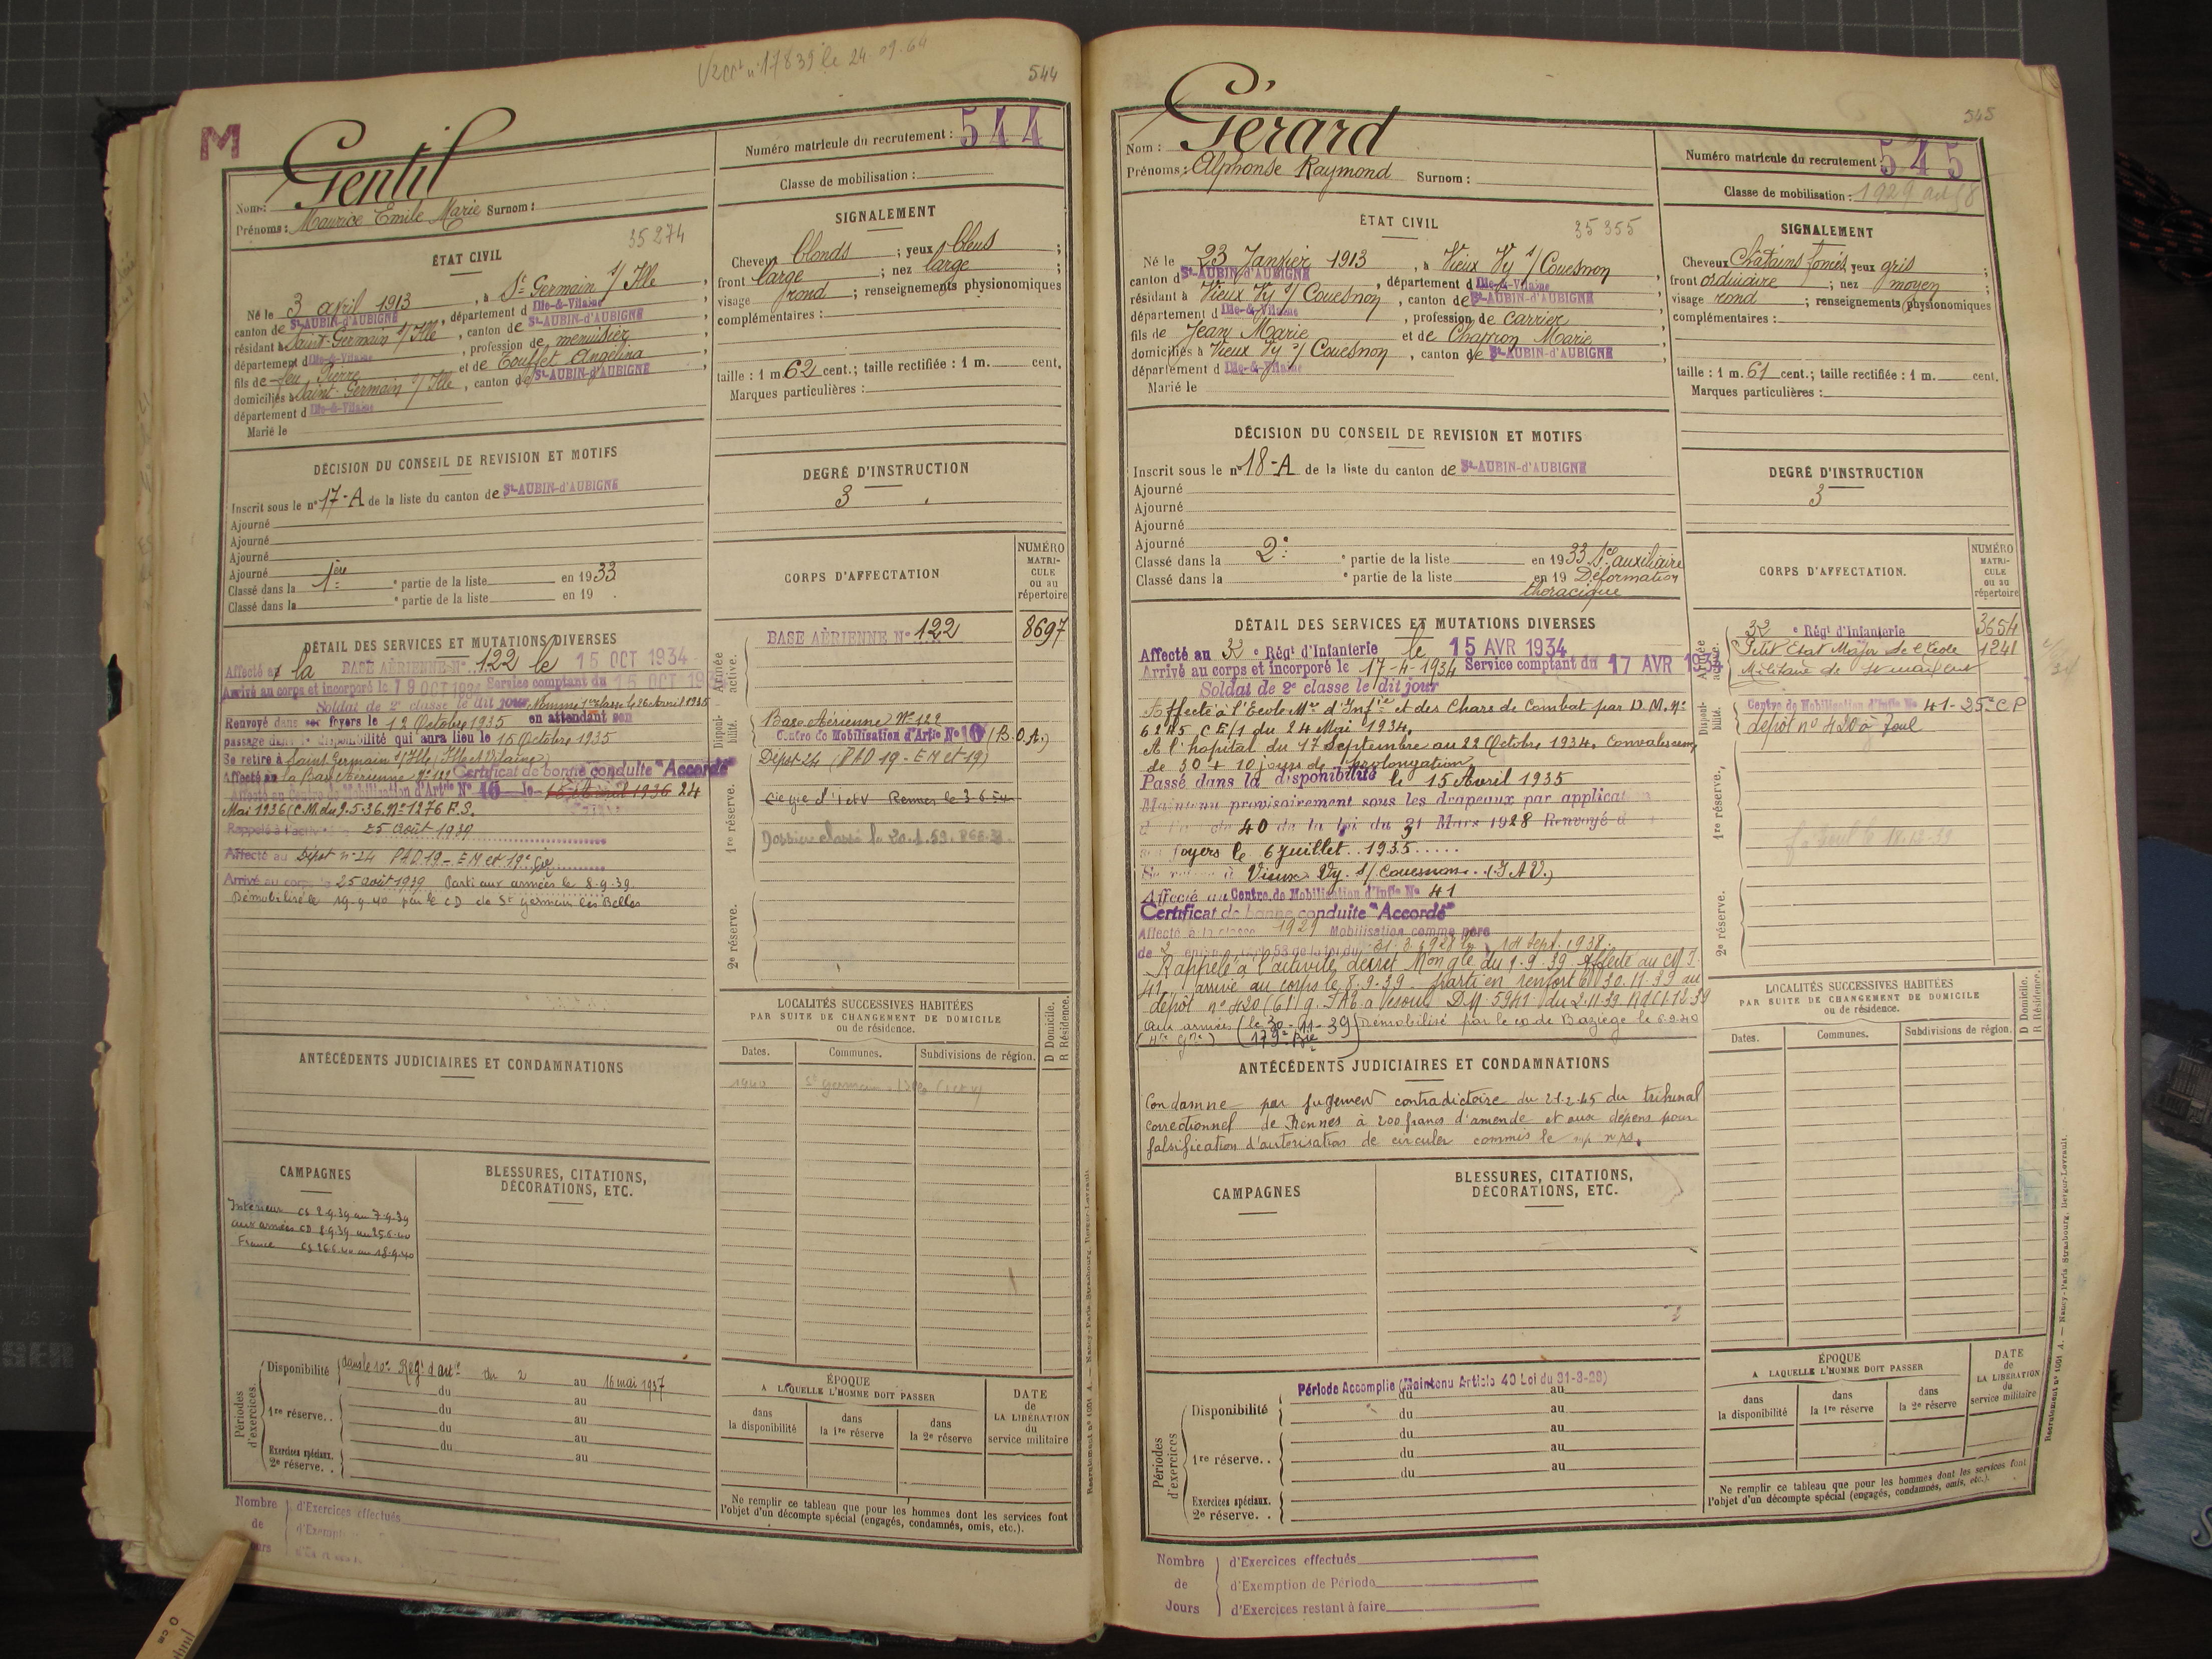 n° 17839 le 24-09-64
544
M
Gentil
Nom :
Prénoms : Maurice Emile Marie Surnom :
35274
ÉTAT CIVIL
Né le 3 avril 1913, à St Germain s/ Ille,
canton de St-AUBIN-d'AUBIGNÉ, département d Ille-&-Vilaine
résidant à Saint-Germain s/ Ille, canton de St-AUBIN-d'AUBIGNÉ
département d Ille-&-Vilaine, profession de menuisier
fils de feu Pierre et de Touffet Angelina,
domiciliés à Saint-Germain s/ Ille, canton de St-AUBIN-d'AUBIGNÉ
département d Ille-&-Vilaine
Marié le
DÉCISION DU CONSEIL DE REVISION ET MOTIFS
Inscrit sous le n° 17-A de la liste du canton de St-AUBIN-d'AUBIGNÉ
Ajourné
Ajourné
Ajourné
Ajourné
Classé dans la 1ère e partie de la liste en 1933
Classé dans la e partie de la liste en 19 .
DÉTAIL DES SERVICES ET MUTATIONS DIVERSES
Affecté à la BASE AÉRIENNE N° 122 le 15 OCT 1934
Arrivé au corps et incorporé le 19 OCT 1934 Service comptant du 15 OCT 193
Soldat de 2e classe le dit jour. Nommé 1ère classe le 26 Avril 1935
Renvoyé dans ses foyers le 12 Octobre 1935 en attendant son
passage dans la disponibilité qui aura lieu le 15 Octobre 1935
Se retire à Saint Germain s/ Ille, Ille et Vilaine
Affecté à la Base Aérienne N° 122 Certificat de bonne conduite "Accordé"
Affecté au Centre de Mobilisation d'Artie N° 10 le 15 Avril 1936 24
Mai 1936 (C.M. du 9.5.36. N° 1276 P.S.
Rappelé à l'activité 25 août 1939
Affecté au Dépôt n° 24 PAD 19 - EM et 19e Cie
Arrivé au corps le 25 août 1939 Parti aux armées le 8.9.39.
Démobilisé le 19.9.40 par le CD de St germain les Belles
ANTÉCÉDENTS JUDICIAIRES ET CONDAMNATIONS
CAMPAGNES
Intérieur CS 2.9.39 au 7.9.39
aux armées CD 8.9.39 au 25.6.40
France CS 26.6.40 au 18.9.40
BLESSURES, CITATIONS,
DÉCORATIONS, ETC.
Périodes d'exercices.
Disponibilité dans le 10e Regt d'art. du 2 au 16 mai 1937
du au
1re réserve. . du au
du au
Exercices spéciaux. du au
2e réserve. .
Nombre de Jours
d'Exercices effectués
d'Exempt
Numéro matricule du recrutement : 544
Classe de mobilisation :
SIGNALEMENT
Cheveux blonds ; yeux bleus ;
front large ; nez large ;
visage rond ; renseignements physionomiques
complémentaires :
taille : 1 m. 62 cent.; taille rectifiée : 1 m. cent.
Marques particulières :
DEGRÉ D'INSTRUCTION
3
CORPS D'AFFECTATION
NUMÉRO MATRICULE ou au répertoire
Armée active.
BASE AÉRIENNE N° 122 8697
Disponibilité.
Base Aérienne N° 122
Centre de Mobilisation d'Artie N° 10 (B.O.A.)
Dépôt 24 (PAD 19 - EM et 19)
1re réserve.
Rennes le 3-6-54
Dossier classé le 20.1.59.
2e réserve.
LOCALITÉS SUCCESSIVES HABITÉES
PAR SUITE DE CHANGEMENT DE DOMICILE
ou de résidence.
D Domicile. R Résidence.
Dates. Communes. Subdivisions de région.
1940 St Germain s/ Ille (I et V)
ÉPOQUE
A LAQUELLE L'HOMME DOIT PASSER
dans la disponibilité dans la 1re réserve dans la 2e réserve
DATE de LA LIBÉRATION du service militaire
Ne remplir ce tableau que pour les hommes dont les services font
l'objet d'un décompte spécial (engagés, condamnés, omis, etc.).
545
Gérard
Nom :
Prénoms : Alphonse Raymond Surnom :
35355
ÉTAT CIVIL
Né le 23 Janvier 1913, à Vieux Vy s/ Couesnon,
canton d St-AUBIN-d'AUBIGNÉ, département d Ille-&-Vilaine
résidant à Vieux Vy s/ Couesnon, canton de St-AUBIN-d'AUBIGNÉ
département d Ille-&-Vilaine, profession de carrier
fils de Jean Marie et de Charron Marie
domiciliés à Vieux Vy s/ Couesnon, canton de St-AUBIN-d'AUBIGNÉ
département d Ille-&-Vilaine
Marié le
DÉCISION DU CONSEIL DE REVISION ET MOTIFS
Inscrit sous le n° 18-A de la liste du canton de St-AUBIN-d'AUBIGNÉ
Ajourné
Ajourné
Ajourné
Ajourné
Classé dans la 2e e partie de la liste en 1933 Sce auxiliaire
Classé dans la e partie de la liste en 19 Déformation
thoracique
DÉTAIL DES SERVICES ET MUTATIONS DIVERSES
Affecté au 32 e Régt d'Infanterie le 15 AVR 1934
Arrivé au corps et incorporé le 17-4-1934 Service comptant du 17 AVR 1934
Soldat de 2e classe le dit jour
Affecté à l'Ecole Mre d'Infie et des Chars de Combat par D.M. N°
6245 CE/1 du 24 Mai 1934.
A l'hôpital du 17 Septembre au 22 Octobre 1934. Convalescence
de 30 + 10 jours de prolongation
Passé dans la disponibilité le 15 Avril 1935
Maintenu provisoirement sous les drapeaux par applicat
40 de la loi du 31 Mars 1928 Renvoyé d
foyers le 6 Juillet 1935
Se retire à Vieux Vy. s/ Couesnon. (I. & V.)
Affecté au Centre de Mobilisation d'Infie N° 41
Certificat de bonne conduite "Accordé"
Affecté à la classe 1929 Mobilisation comme père
de 2 enfants 58 de la loi du 31.3.1928 le 14 Sept. 1938.
Rappelé à l'activité décret Mon gle du 1.9.39 Affecté au CM I
41 arrivé au corps le 8.9.39. parti en renfort le 30.11.39 au
dépôt n° 420 (61) D.M. 5941 du 2.11.39
Aux armées (le 30-11-39) Démobilisé par le CD de Baziège le 6.9.40
ANTÉCÉDENTS JUDICIAIRES ET CONDAMNATIONS
Condamné par jugement contradictoire du 21.2.45 du tribunal
correctionnel de Rennes à 200 francs d'amende et aux dépens pour
falsification d'autorisation de circuler commis le
CAMPAGNES
BLESSURES, CITATIONS,
DÉCORATIONS, ETC.
Période Accomplie (Maintenu Article 40 Loi du 31-3-28)
Périodes d'exercices
Disponibilité du au
du au
1re réserve. . du au
du au
du au
Exercices spéciaux.
2e réserve. .
Nombre de Jours
d'Exercices effectués
d'Exemption de Période
d'Exercices restant à faire
Numéro matricule du recrutement : 545
Classe de mobilisation : 1929 art 58
SIGNALEMENT
Cheveux Châtains foncés yeux gris ;
front ordinaire ; nez moyen ;
visage rond ; renseignements physionomiques
complémentaires :
taille : 1 m. 61 cent.; taille rectifiée : 1 m. cent.
Marques particulières :
DEGRÉ D'INSTRUCTION
3
CORPS D'AFFECTATION.
NUMÉRO MATRICULE ou au répertoire
Armée active.
32 e Régt d'Infanterie 3654
Petit Etat Major de l'Ecole 1241
Militaire de St maixent
Disponibilité.
Centre de Mobilisation d'Infie N° 41 - 25e CP
dépôt n° 420 à Toul
1re réserve.
2e réserve.
LOCALITÉS SUCCESSIVES HABITÉES
PAR SUITE DE CHANGEMENT DE DOMICILE
ou de résidence.
D Domicile. R Résidence.
Dates. Communes. Subdivisions de région.
ÉPOQUE
A LAQUELLE L'HOMME DOIT PASSER
dans la disponibilité dans la 1re réserve dans la 2e réserve
DATE de LA LIBÉRATION du service militaire
Ne remplir ce tableau que pour les hommes dont les services font
l'objet d'un décompte spécial (engagés, condamnés, omis, etc.).